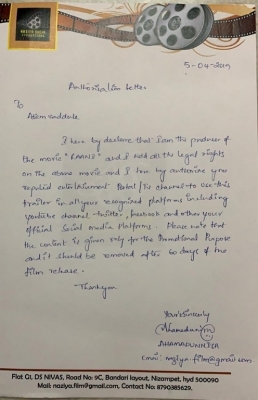 5-04-2019
Authorization Letter
To
Asem Vaddada
I here by declare that I am the producer of
the movie "BRAND" and I hold all the legal rights
on the above movie and I here by authorize you
reputed entertainment Portal / TV channel to use this
trailer in all your recognized platforms including
youtube channel, twitter, facebook and other your
official social media Platforms. Please note that
the content is given only for the Promotional Purpose
and it should be removed after 60 days of the
film release.
Thankyou
Yours sincerely
SHAMSHUNNISA
Email:
Flat G1, DS NIVAS, Road No: 9C, Bandari layout, Nizampet, hyd 500090
Mail: naziya.film@gmail.com, Contact No: 8790385629.